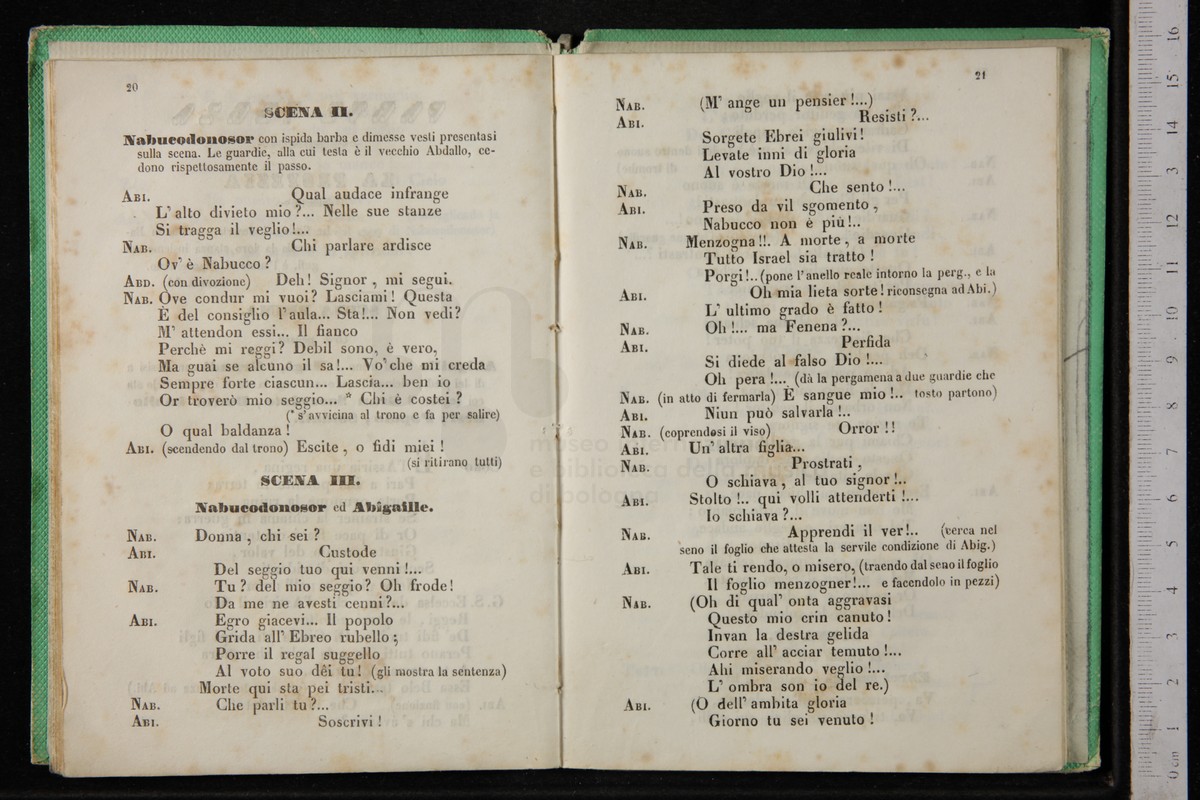 20
SCENA II.
Nabucodonosor con ispida barba e dimesse vesti presentasi
sulla scena. Le guardie, alla cui testa è il vecchio Abdallo, ce-
dono rispettosamente il passo.
ABI. Qual audace infrange
L' alto divieto mio ?... Nelle sue stanze
Si tragga il veglio !...
NAB. Chi parlare ardisce
Ov' è Nabucco ?
ABD. (con divozione) Deh ! Signor , mi segui.
NAB. Ove condur mi vuoi? Lasciami ! Questa
È del consiglio l'aula... Sta!... Non vedi?
M' attendon essi... Il fianco
Perchè mi reggi? Debil sono, è vero,
Ma guai se alcuno il sa!... Vo' che mi creda
Sempre forte ciascun... Lascia... ben io
Or troverò mio seggio... * Chi è costei ?
(* s' avvicina al trono e fa per salire)
O qual baldanza !
ABI. (scendendo dal trono) Escite , o fidi miei !
(si ritirano tutti)
SCENA III.
Nabucodonosor ed Abigaille.
NAB. Donna , chi sei ?
ABI. Custode
Del seggio tuo qui venni !...
NAB. Tu ? del mio seggio? Oh frode!
Da me ne avesti cenni ?...
ABI. Egro giacevi... Il popolo
Grida all' Ebreo rubello ;
Porre il regal suggello
Al voto suo dêi tu! (gli mostra la sentenza)
Morte qui sta pei tristi...
NAB. Che parli tu ?...
ABI. Soscrivi !
21
NAB. (M' ange un pensier !...)
ABI. Resisti ?...
Sorgete Ebrei giulivi !
Levate inni di gloria
Al vostro Dio !...
NAB. Che sento !...
ABI. Preso da vil sgomento ,
Nabucco non è più!..
NAB. Menzogna !!. A morte , a morte
Tutto Israel sia tratto !
Porgi !.. (pone l'anello reale intorno la perg., e la
ABI. Oh mia lieta sorte ! riconsegna ad Abi.)
L' ultimo grado è fatto !
NAB. Oh !... ma Fenena ?...
ABI. Perfida
Si diede al falso Dio !...
Oh pera !... (dà la pergamena a due guardie che
NAB. (in atto di fermarla) È sangue mio !.. tosto partono)
ABI. Niun può salvarla !..
NAB. (coprendosi il viso) Orror !!
ABI. Un' altra figlia...
NAB. Prostrati ,
O schiava , al tuo signor !..
ABI. Stolto !.. qui volli attenderti !...
Io schiava ?...
NAB. Apprendi il ver !.. (cerca nel
seno il foglio che attesta la servile condizione di Abig.)
ABI. Tale ti rendo, o misero, (traendo dal seno il foglio
Il foglio menzogner !... e facendolo in pezzi)
NAB. (Oh di qual' onta aggravasi
Questo mio crin canuto !
Invan la destra gelida
Corre all' acciar temuto !...
Ahi miserando veglio !...
L' ombra son io del re.)
ABI. (O dell' ambita gloria
Giorno tu sei venuto !